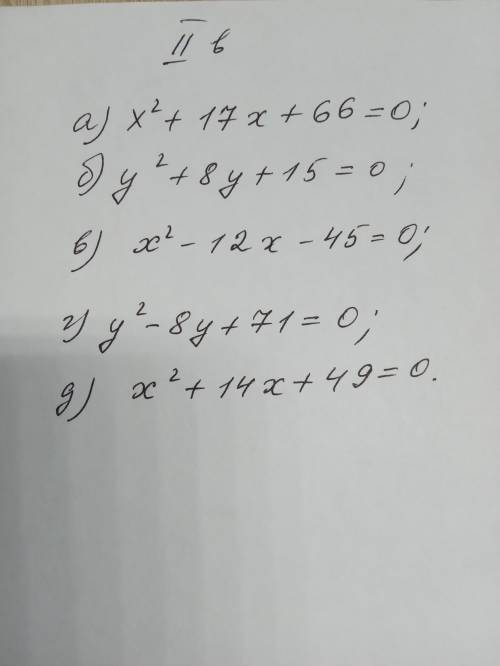 II в
а) x² + 17x + 66 = 0;
б) y² + 8y + 15 = 0;
в) x² - 12x - 45 = 0;
г) y² - 8y + 71 = 0;
д) x² + 14x + 49 = 0.